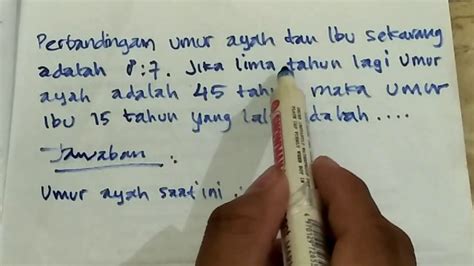 Perbandingan umur ayah dan Ibu sekarang
adalah 8:7. Jika lima tahun lagi umur
ayah adalah 45 maka umur
Ibu 15 tahun yang
Jawaban :
Umur ayah saat ini :